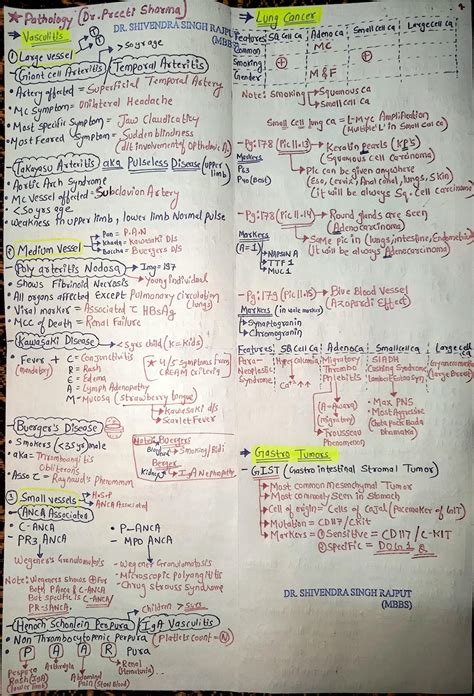 ★ Pathology (Dr. Preeti Sharma)
DR. SHIVENDRA SINGH RAJPUT
(MBBS)
→ Vasculitis
① Large vessel → >50 yrs age
Giant cell Arteritis / Temporal Arteritis
• Artery affected = Superficial Temporal Artery
• MC Symptom = Unilateral Headache
• Most specific Symptom = Jaw Claudication
• Most Feared Symptom = Sudden blindness
(d/t involvement of Opthalmic A.)
- Takayasu Arteritis aka Pulseless Disease (upper limb)
• Aortic Arch Syndrome
• MC Vessel affected = Subclavian Artery
• <50 yrs age
• Weakness in upper limb, lower limb Normal pulse
② Medium Vessel
Pan = P.A.N
Khaega = Kawasaki D/s
Baccha = Buergers D/s
Poly arteritis Nodosa → Img = 197
• Shows Fibrinoid Necrosis → Young individual
• All organs affected Except Pulmonary circulation (lung)
• Viral marker = Associated c HBsAg
• MCC of Death = Renal Failure
- Kawasaki Disease → <5 yrs child (K = Kids)
• Fever + C = Conjunctivitis
(mandatory)
R = Rash
E = Edema
A = Lymph Adenopathy
M = Mucosa (strawberry tongue)
★ 4/5 symptoms from CREAM criteria
→ Kawasaki d/s
→ Scarlet Fever
- Buerger's Disease
• Smokers (<35 yrs) male
• aka = Thromboangitis Obliterans
• Asso c = Raynaud's Phenomenon
Note: Buergers
→ Smoking/Bidi
Berger
Kidney → IgA Nephropathy
③ Small vessels → H.S.P
→ ANCA Associated
- ANCA Associated
- C-ANCA
- PR3 ANCA
• P-ANCA
- MPO ANCA
Wegener's Granulomatosis
- Wegener Granulomatosis
- Microscopic Polyangitis
- Churg Strauss Syndrome
Note: Wegeners shows
Both P Anca & C-ANCA
But specific is C-ANCA/
PR-3 ANCA
- Henoch Schonlein Purpura / IgA Vasculitis
→ Children > 5 yrs
• Non Thrombocytopenic Purpura (Platelets count = N)
P A A R Pura
Arthralgia
Renal (Hematuria)
Abdominal Pain
→ Lung Cancer
Features | SQ Cell Ca | Adeno Ca | Small cell Ca | Large cell Ca
Common | MC
Smoking | ⊕ | ⊕
Gender | M & F
Note: Smoking → Squamous Ca
→ Small cell Ca
Small cell lung Ca = L-myc Amplification
- Pg: 178 (Pic 11.13) → Keratin pearls (KP's)
(Squamous cell Carcinoma)
Markers
P63
P40 (Best)
→ Pic can be given anywhere
(Eso, Cervix, Anal canal, lungs, Skin)
(it will be always Sq. Cell carcinoma)
- Pg: 178 (Pic 11.14) → Round glands are seen
(Adenocarcinoma)
Markers
(A=1)
→ NAPSIN A
→ TTF 1
→ MUC 1
→ Same pic in (lungs, intestine, Endometrium)
(it will be always Adenocarcinoma)
- Pg: 179 (Pic 11.15) → Blue Blood Vessel
(Azopardi Effect)
Markers
→ Synaptogranin
→ Chromogranin
Features: | SQ Cell Ca | Adenoca | Small cell Ca | Large cell Ca
Para-Neoplastic Syndrome
Hypercalcemia
Ca++ ↑↑
Migratory Thrombo Phlebitis
(A = Awara)
(migratory)
→ Trousseau Phenomenon
SIADH
Cushing Syndrome
Lambert Eaton Syn
• Max PNS
• Most Aggressive
Gynaecomastia
→ Gastro Tumors
- GIST (Gastro intestinal Stromal Tumor)
→ Most common Mesenchymal Tumor
→ Most commonly Seen in Stomach
→ Cell of origin = Cells of Cajal (Pacemaker of GIT)
→ Mutation = CD117/c-KIT
→ Markers = ① Sensitive = CD117/C-KIT
② Specific = DOG 1
DR. SHIVENDRA SINGH RAJPUT
(MBBS)